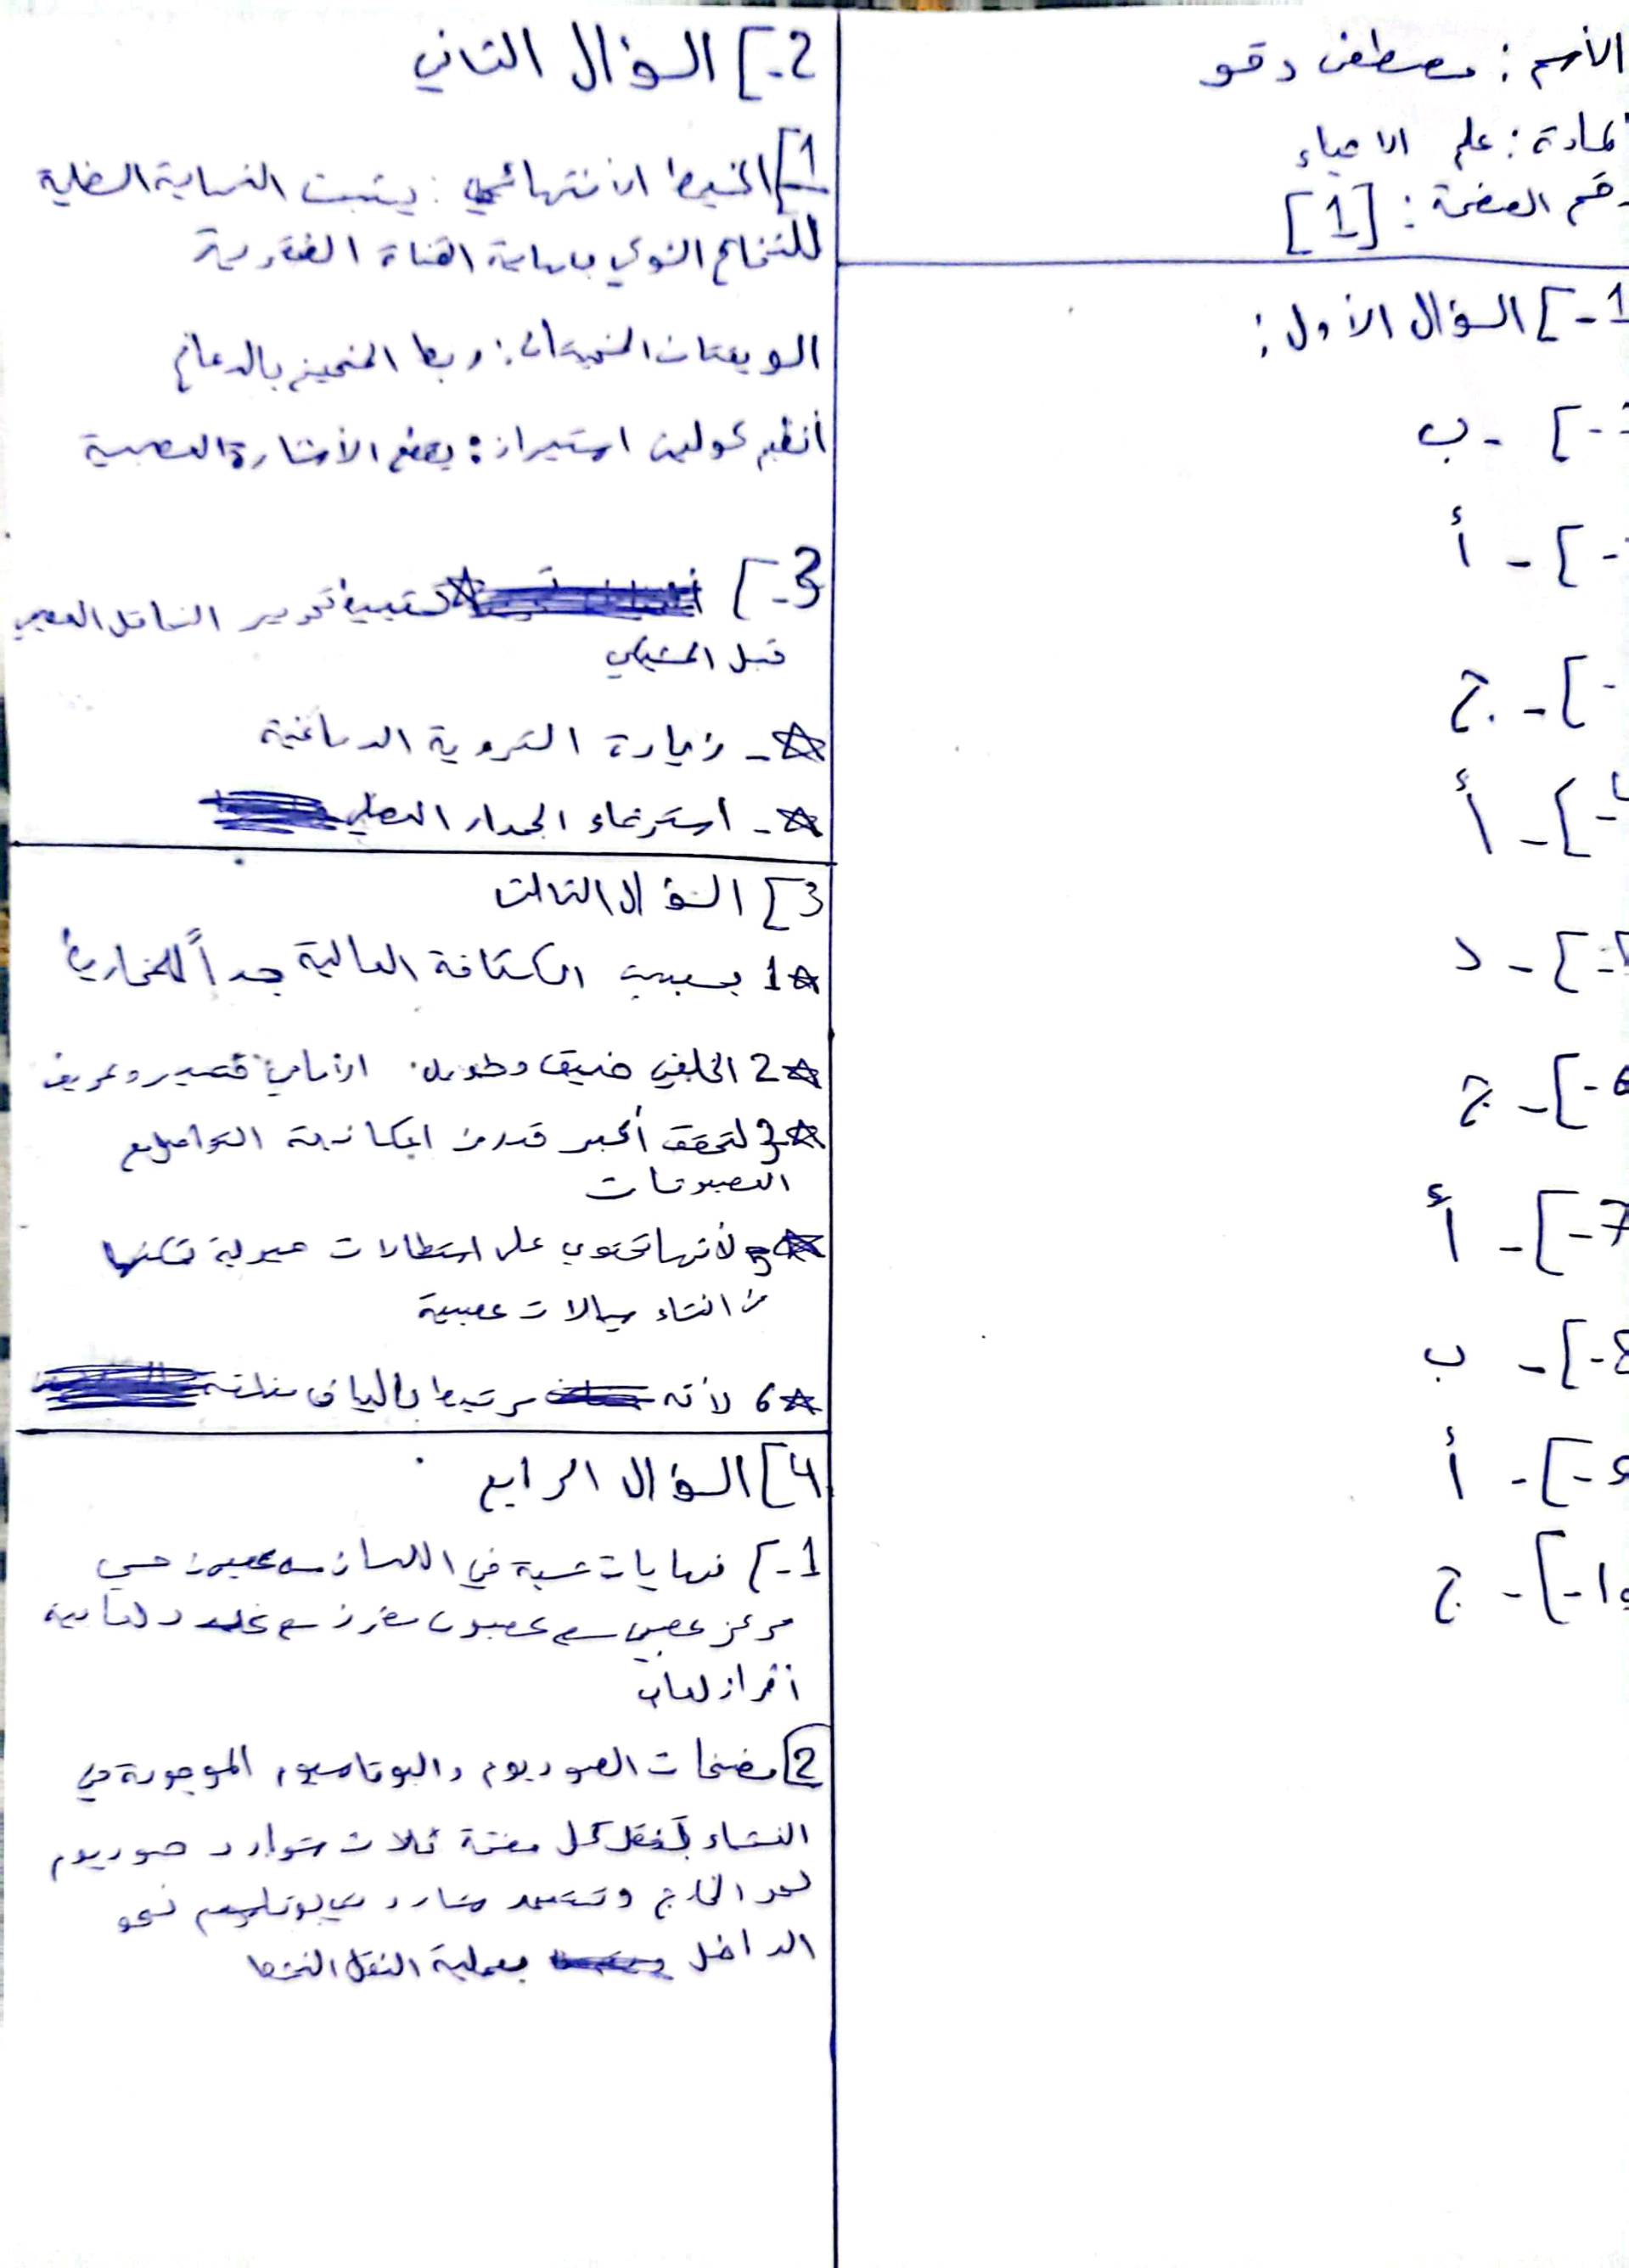 الأسم : مصطفى دقو
المادة : علم الاحياء
رقم الصفحة : [1]
1-] السؤال الأول :
-] - ب
-] - أ
-] - ج
-] - أ
-] - د
6-] - ج
7-] - أ
8-] - ب
-] - أ
10-] - ج
2-] السؤال الثاني
1] الخيط الانتهائي : يثبت النهاية السفلية
للنخاع الشوكي بنهاية القناة الفقرية
الويقات المخيتان : ربط المخيخ بالدماغ
أنظيم كولين استيراز : يقطع الأشارة العصبية
3-] تثبيط تحرير الناقل العصبي
قبل المشبكي
☆- زيادة التروية الدماغية
☆- استرخاء الجدار العضلي
3] السؤال الثالث
☆1 بسبب الكثافة العالية جداً للمخاريط
☆2 الخلفي ضيق وطويل . الأمامي قصير وعريض
☆3 لتحقق أكبر قدر من امكانية التواصل مع
العصبونات
☆5 لأنها تحتوي على استطالات هيولية تمكنها
من انشاء سيالات عصبية
☆6 لأنه مرتبط بألياف
4] السؤال الرابع
1-] نهايات حسية في اللسان ← عصبون حسي
مركز عصبي ← عصبون مفرز ← غدد لعابية
افراز لعاب
2] مضخات الصوديوم والبوتاسيوم الموجودة في
الغشاء تنقل كل مضخة ثلاث شوارد صوديوم
نحو الخارج و شاردتي بوتاسيوم نحو
الداخل بعملية النقل النشط